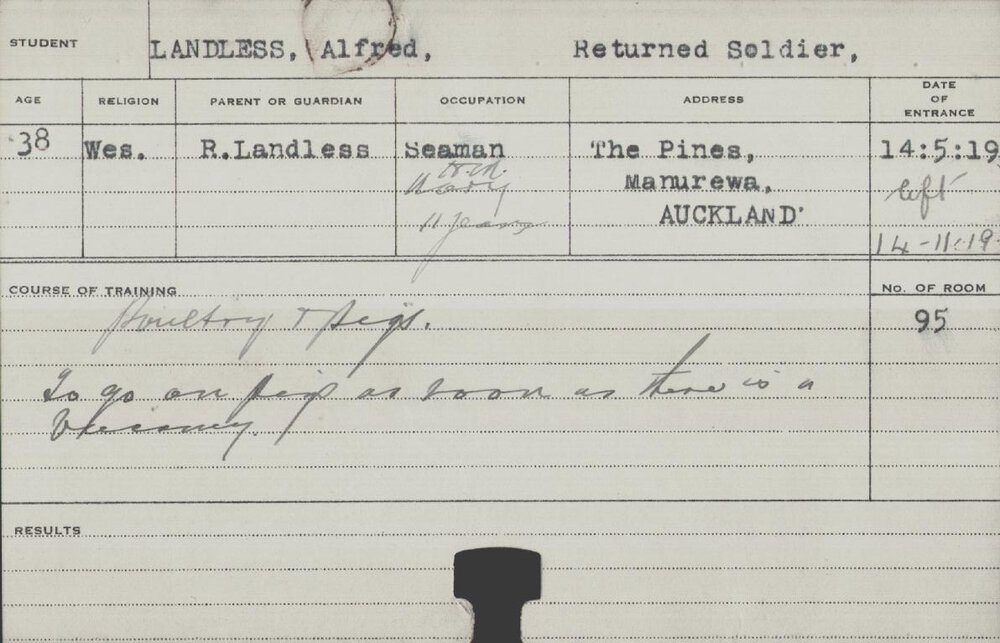 STUDENT LANDLESS, Alfred, Returned Soldier,
AGE RELIGION PARENT OR GUARDIAN OCCUPATION ADDRESS DATE OF ENTRANCE
38 Wes. R.Landless Seaman The Pines, 14:5:19
Navy Manurewa, left
11 years AUCKLAND
14-11-19
COURSE OF TRAINING No. OF ROOM
Poultry & pigs. 95
To go on pigs as soon as there is a
Vacancy.
RESULTS